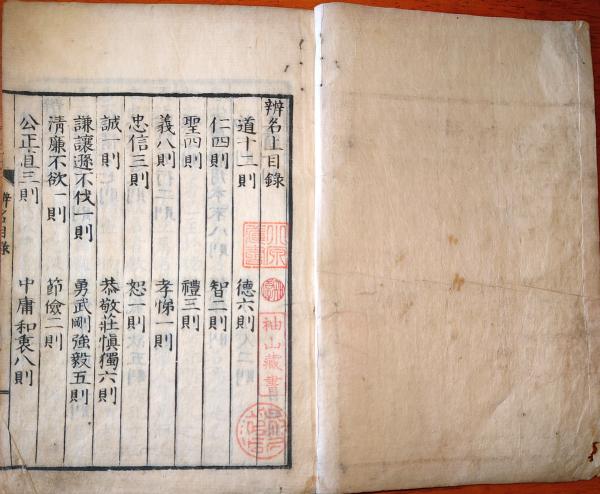 辨名上目錄
道十二則　德六則
仁四則　智二則
聖四則　禮三則
義八則　孝悌一則
忠信三則　恕一則
誠一則　恭敬莊愼獨六則
謙讓遜不伐一則　勇武剛強毅五則
清廉不欲一則　節儉二則
公正直三則　中庸和衷八則
辨名目錄
袖山藏書